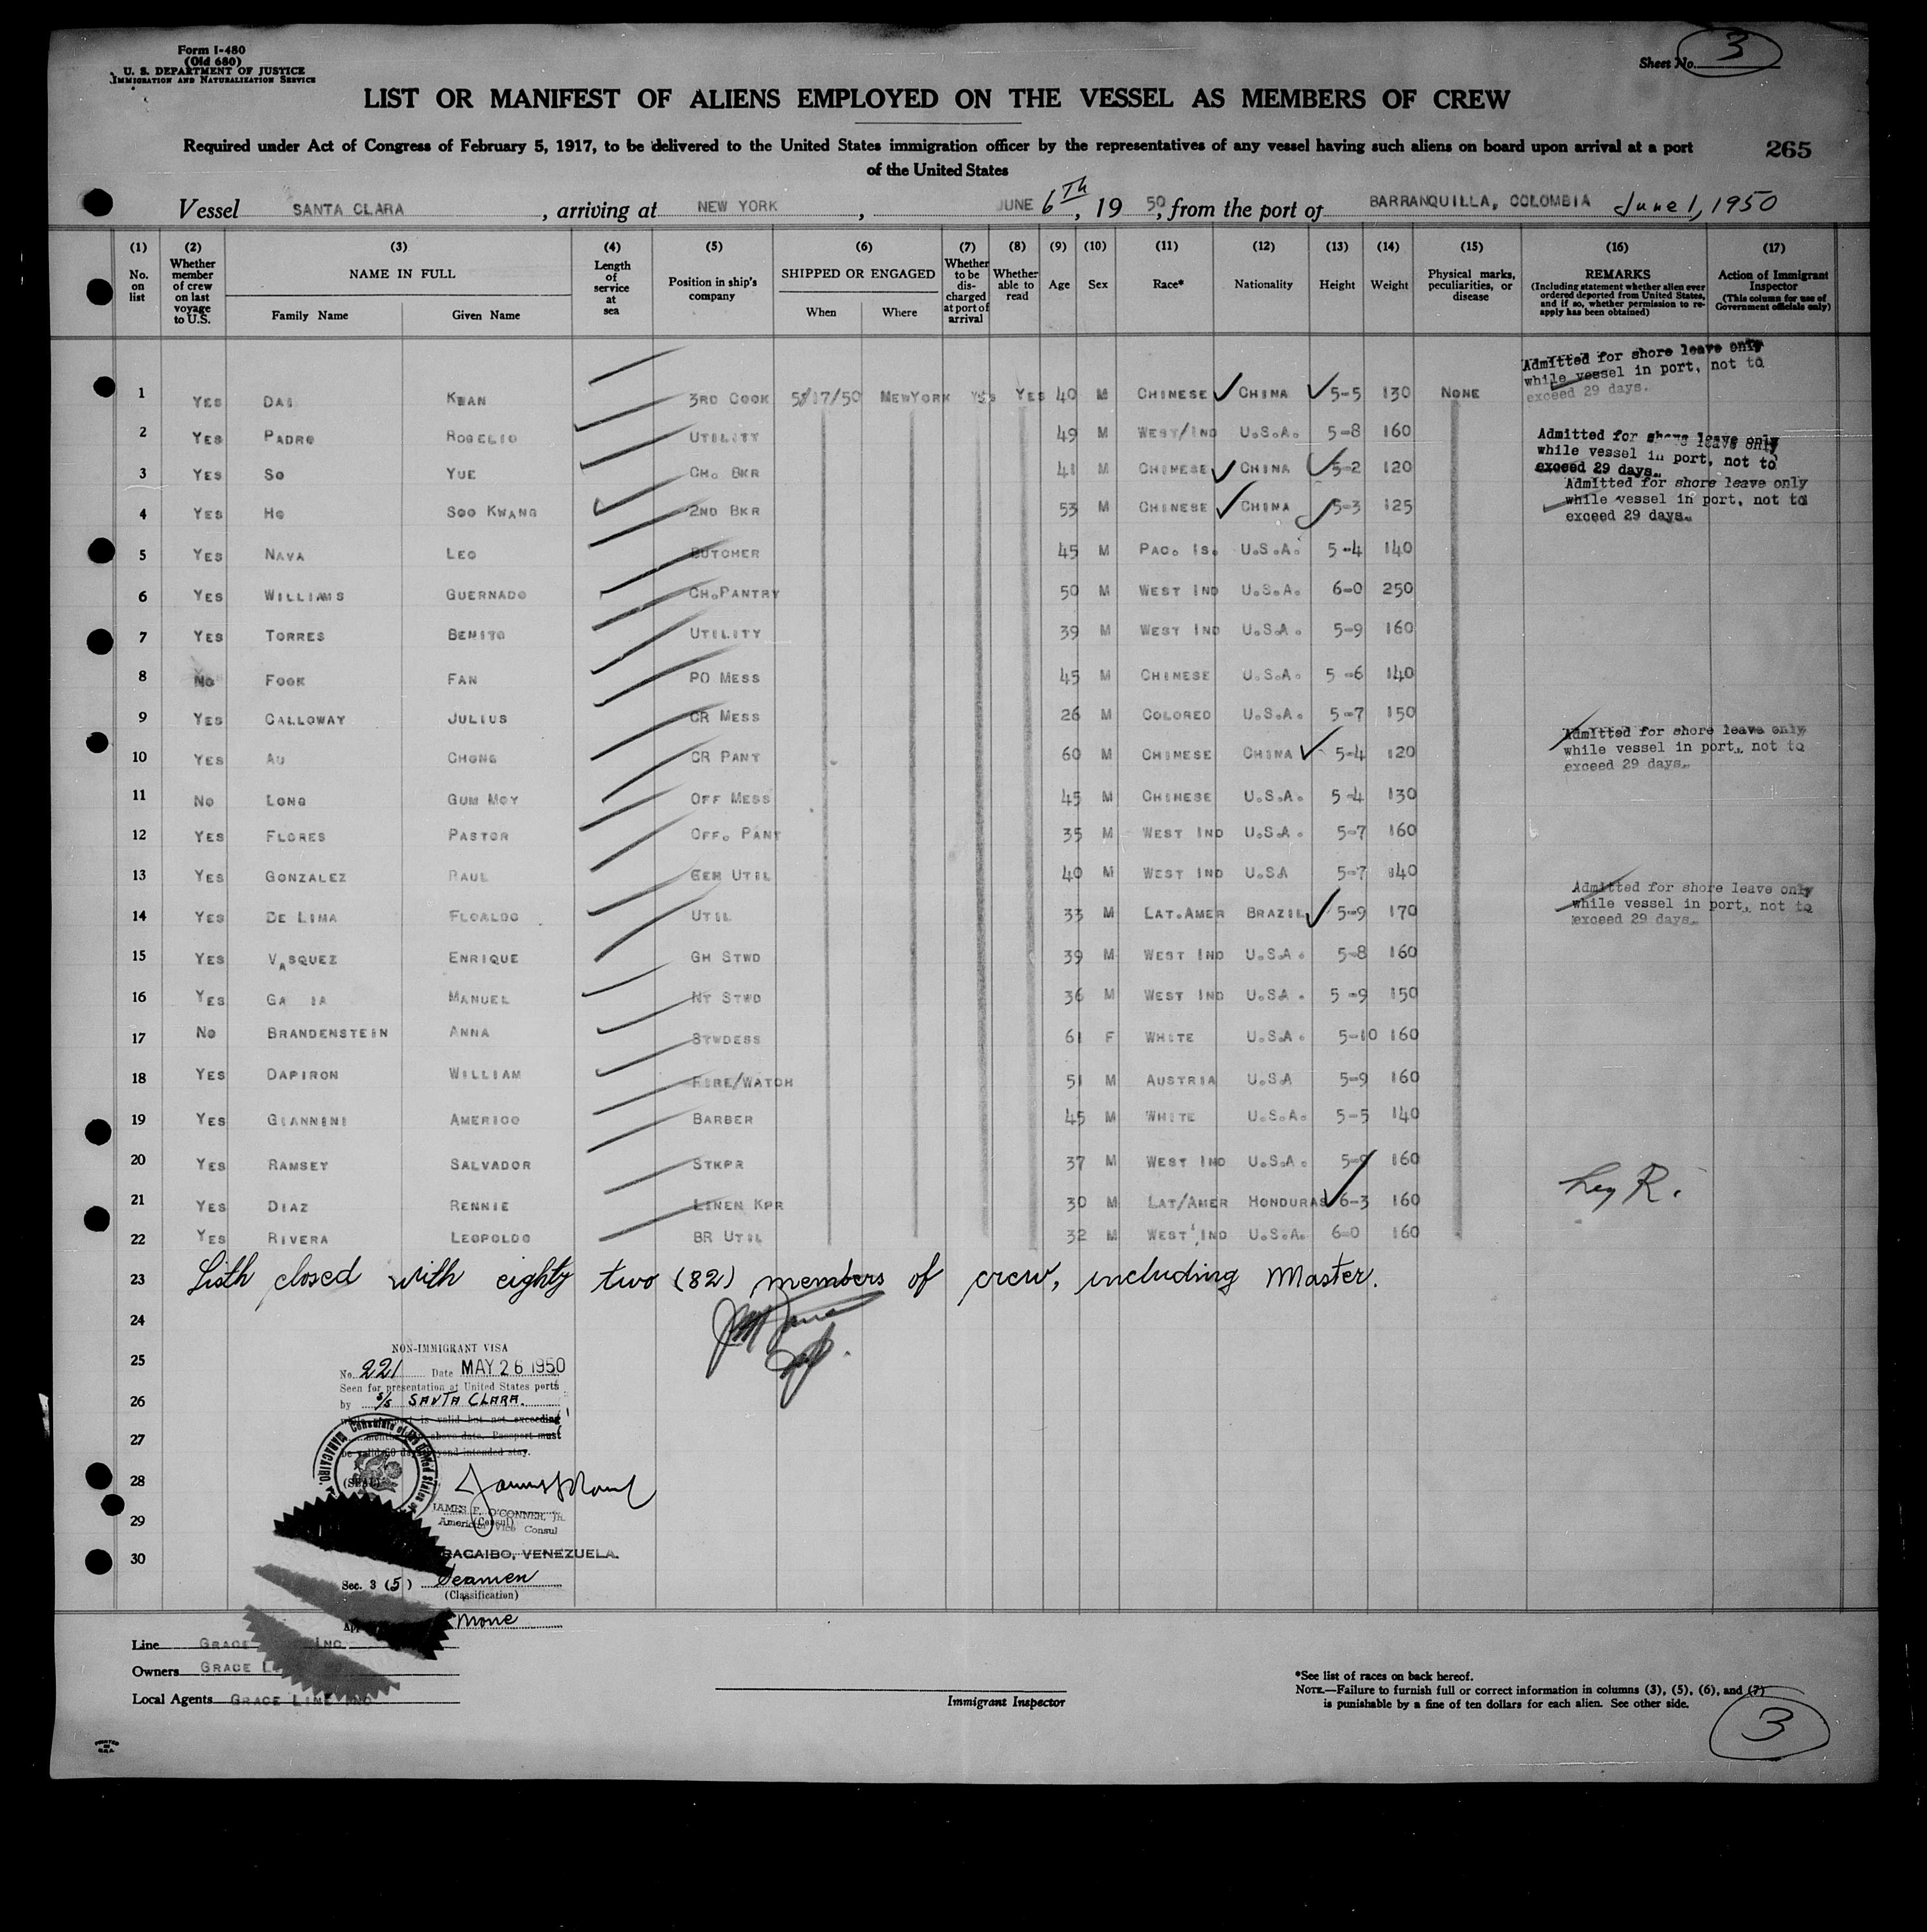 Form I-480
(Old 680)
U. S. DEPARTMENT OF JUSTICE
IMMIGRATION AND NATURALIZATION SERVICE
Sheet No. 3
LIST OR MANIFEST OF ALIENS EMPLOYED ON THE VESSEL AS MEMBERS OF CREW
Required under Act of Congress of February 5, 1917, to be delivered to the United States immigration officer by the representatives of any vessel having such aliens on board upon arrival at a port
of the United States
265
Vessel SANTA CLARA, arriving at NEW YORK, JUNE 6Th, 1950, from the port of BARRANQUILLA, COLOMBIA June 1, 1950
(1) No. on list
(2) Whether member of crew on last voyage to U.S.
(3) NAME IN FULL
Family Name Given Name
(4) Length of service at sea
(5) Position in ship's company
(6) SHIPPED OR ENGAGED
When Where
(7) Whether to be discharged at port of arrival
(8) Whether able to read
(9) Age
(10) Sex
(11) Race*
(12) Nationality
(13) Height
(14) Weight
(15) Physical marks, peculiarities, or disease
(16) REMARKS
(Including statement whether alien ever ordered deported from United States, and if so, whether permission to re-apply has been obtained)
(17) Action of Immigrant Inspector
(This column for use of Government officials only)
1 YES DAI KWAN 3RD COOK 5/17/50 NEWYORK YES YES 40 M CHINESE CHINA 5-5 130 NONE Admitted for shore leave only while vessel in port, not to exceed 29 days.
2 YES PADRO ROGELIO UTILITY 49 M WEST/IND U.S.A. 5-8 160
3 YES SO YUE CH. BKR 41 M CHINESE CHINA 5-2 120 Admitted for shore leave only while vessel in port, not to exceed 29 days.
4 YES HO SOO KWANG 2ND BKR 53 M CHINESE CHINA 5-3 125 Admitted for shore leave only while vessel in port, not to exceed 29 days.
5 YES NAVA LEO BUTCHER 45 M PAC. IS. U.S.A. 5-4 140
6 YES WILLIAMS GUERNADO CH.PANTRY 50 M WEST IND U.S.A. 6-0 250
7 YES TORRES BENITO UTILITY 39 M WEST IND U.S.A. 5-9 160
8 NO FOOK FAN PO MESS 45 M CHINESE U.S.A. 5-6 140
9 YES CALLOWAY JULIUS CR MESS 26 M COLORED U.S.A. 5-7 150
10 YES AU CHONG CR PANT 60 M CHINESE CHINA 5-4 120 Admitted for shore leave only while vessel in port, not to exceed 29 days.
11 NO LONG GUM MOY OFF MESS 45 M CHINESE U.S.A. 5-4 130
12 YES FLORES PASTOR OFF. PANT 35 M WEST IND U.S.A. 5-7 160
13 YES GONZALEZ RAUL GEN UTIL 40 M WEST IND U.S.A 5-7 140
14 YES DE LIMA FLOALDO UTIL 33 M LAT.AMER BRAZIL 5-9 170 Admitted for shore leave only while vessel in port, not to exceed 29 days.
15 YES VASQUEZ ENRIQUE GH STWD 39 M WEST IND U.S.A. 5-8 160
16 YES GA IA MANUEL NT STWD 36 M WEST IND U.S.A. 5-9 150
17 NO BRANDENSTEIN ANNA STWDESS 61 F WHITE U.S.A. 5-10 160
18 YES DAPIRON WILLIAM FIRE/WATCH 51 M AUSTRIA U.S.A 5-9 160
19 YES GIANNINI AMERICO BARBER 45 M WHITE U.S.A. 5-5 140
20 YES RAMSEY SALVADOR STKPR 37 M WEST IND U.S.A. 5-9 160
21 YES DIAZ RENNIE LINEN KPR 30 M LAT/AMER HONDURAS 6-3 160
22 YES RIVERA LEOPOLDO BR UTIL 32 M WEST IND U.S.A. 6-0 160
23 Listh closed with eighty two (82) members of crew, including Master.
24
25
26
27
28
29
30
NON-IMMIGRANT VISA
No. 221 Date MAY 26 1950
Seen for presentation at United States ports
by S/S SANTA CLARA.
is valid but not exceeding
months above date. Passport must
be valid 60 days beyond intended stay.
Consulate of the United States of
MARACAIBO,
(SEAL)
JAMES F. O'CONNER, JR.
American Vice Consul
(Consul)
RACAIBO, VENEZUELA.
Sec. 3 (5) Seamen
(Classification)
None
Line GRACE INC
Owners GRACE L
Local Agents GRACE LINE INC
Immigrant Inspector
*See list of races on back hereof.
NOTE.—Failure to furnish full or correct information in columns (3), (5), (6), and (7)
is punishable by a fine of ten dollars for each alien. See other side.
3
PRINTED IN U.S.A.